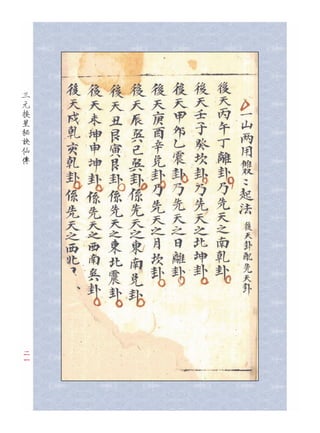 一山兩用盤〻起法 後天卦配先天卦
後天丙午丁離卦乃先天之南乾卦
後天壬子癸坎卦乃先天之北坤卦
後天甲卯乙震卦乃先天之日離卦
後天庚酉辛兌卦乃先天之月坎卦
後天辰巽巳巽卦係先天之東南兌卦
後天丑艮寅艮卦係先天之東北震卦
後天未坤申坤卦係先天之西南巽卦
後天戌乾亥乾卦係先天之西北
三元挨星秘訣仙傳
二一